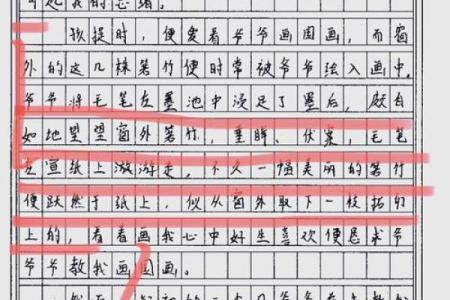 起我的思绪。
孩提时，便爱看爷爷画国画，而窗
外的这几株箬竹便时常被爷爷弦入画中。
爷爷将毛笔在墨池中浸足了墨后，颇自
如地望望窗外箬竹，垂眸、伏案，毛笔
在宣纸上游游走，不久一幅美丽的箬竹
便跃然于纸上，似从窗外取下一枝拓印
上的，看着画我心中好生喜欢便恳求爷
爷爷教我画国画。